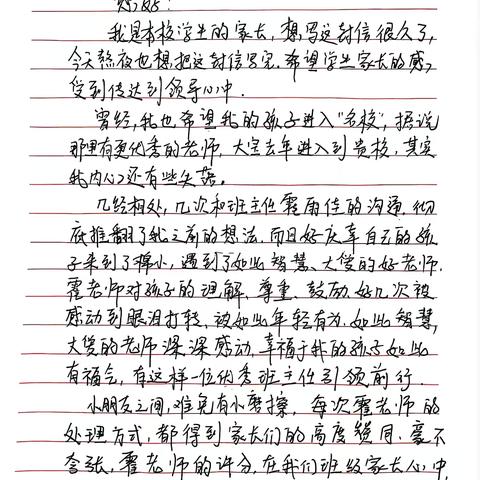 您好：
我是本校学生的家长，想写这封信很久了，
今天熬夜也想把这封信写完．希望学生家长的感
受到传达到领导心中．
曾经，我也希望我的孩子进入“名校”，据说
那里有更优秀的老师，大宝去年进入到贵校，其实
我内心还有些失落。
几经相处，几次和班主任霍雨佳的沟通．彻
底推翻了我之前的想法．而且好庆幸自己的孩
子来到了小，遇到了如此智慧、大爱的好老师．
霍老师对孩子的理解、尊重、鼓励．好几次被
感动到眼泪打转，被如此年轻有为．如此智慧，
大爱的老师深深感动．幸福于我的孩子如此
有福气，有这样一位优秀班主任引领前行．
小朋友之间，难免有小磨擦，每次霍老师的
处理方式，都得到家长们的高度赞同．毫不
夸张，霍老师的评分，在我们班级家长心中，